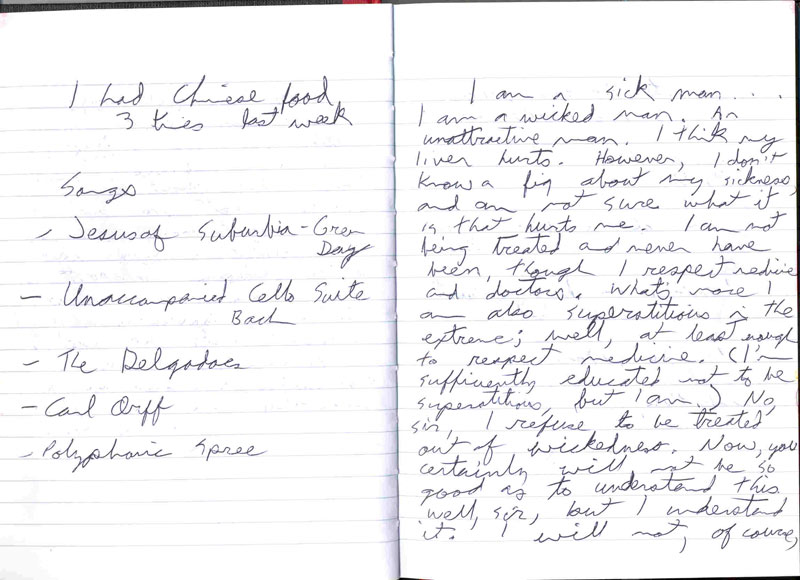 I had Chinese food
3 times last week
Songs
- Jesus of Suburbia - Green
Day
- Unaccompanied Cello Suite
Bach
- The Delgadoes
- Carl Orff
- Polyphonic Spree
I am a sick man...
I am a wicked man. An
unattractive man. I think my
liver hurts. However, I don't
know a fig about my sickness,
and am not sure what it
is that hurts me. I am not
being treated and never have
been, though I respect medicine
and doctors. What's more I
am also superstitious in the
extreme; well, at least enough
to respect medicine. (I'm
sufficiently educated not to be
superstitious, but I am.) No,
sir, I refuse to be treated
out of wickedness. Now, you
certainly will not be so
good as to understand this.
Well, sir, but I understand
it. I will not, of course,